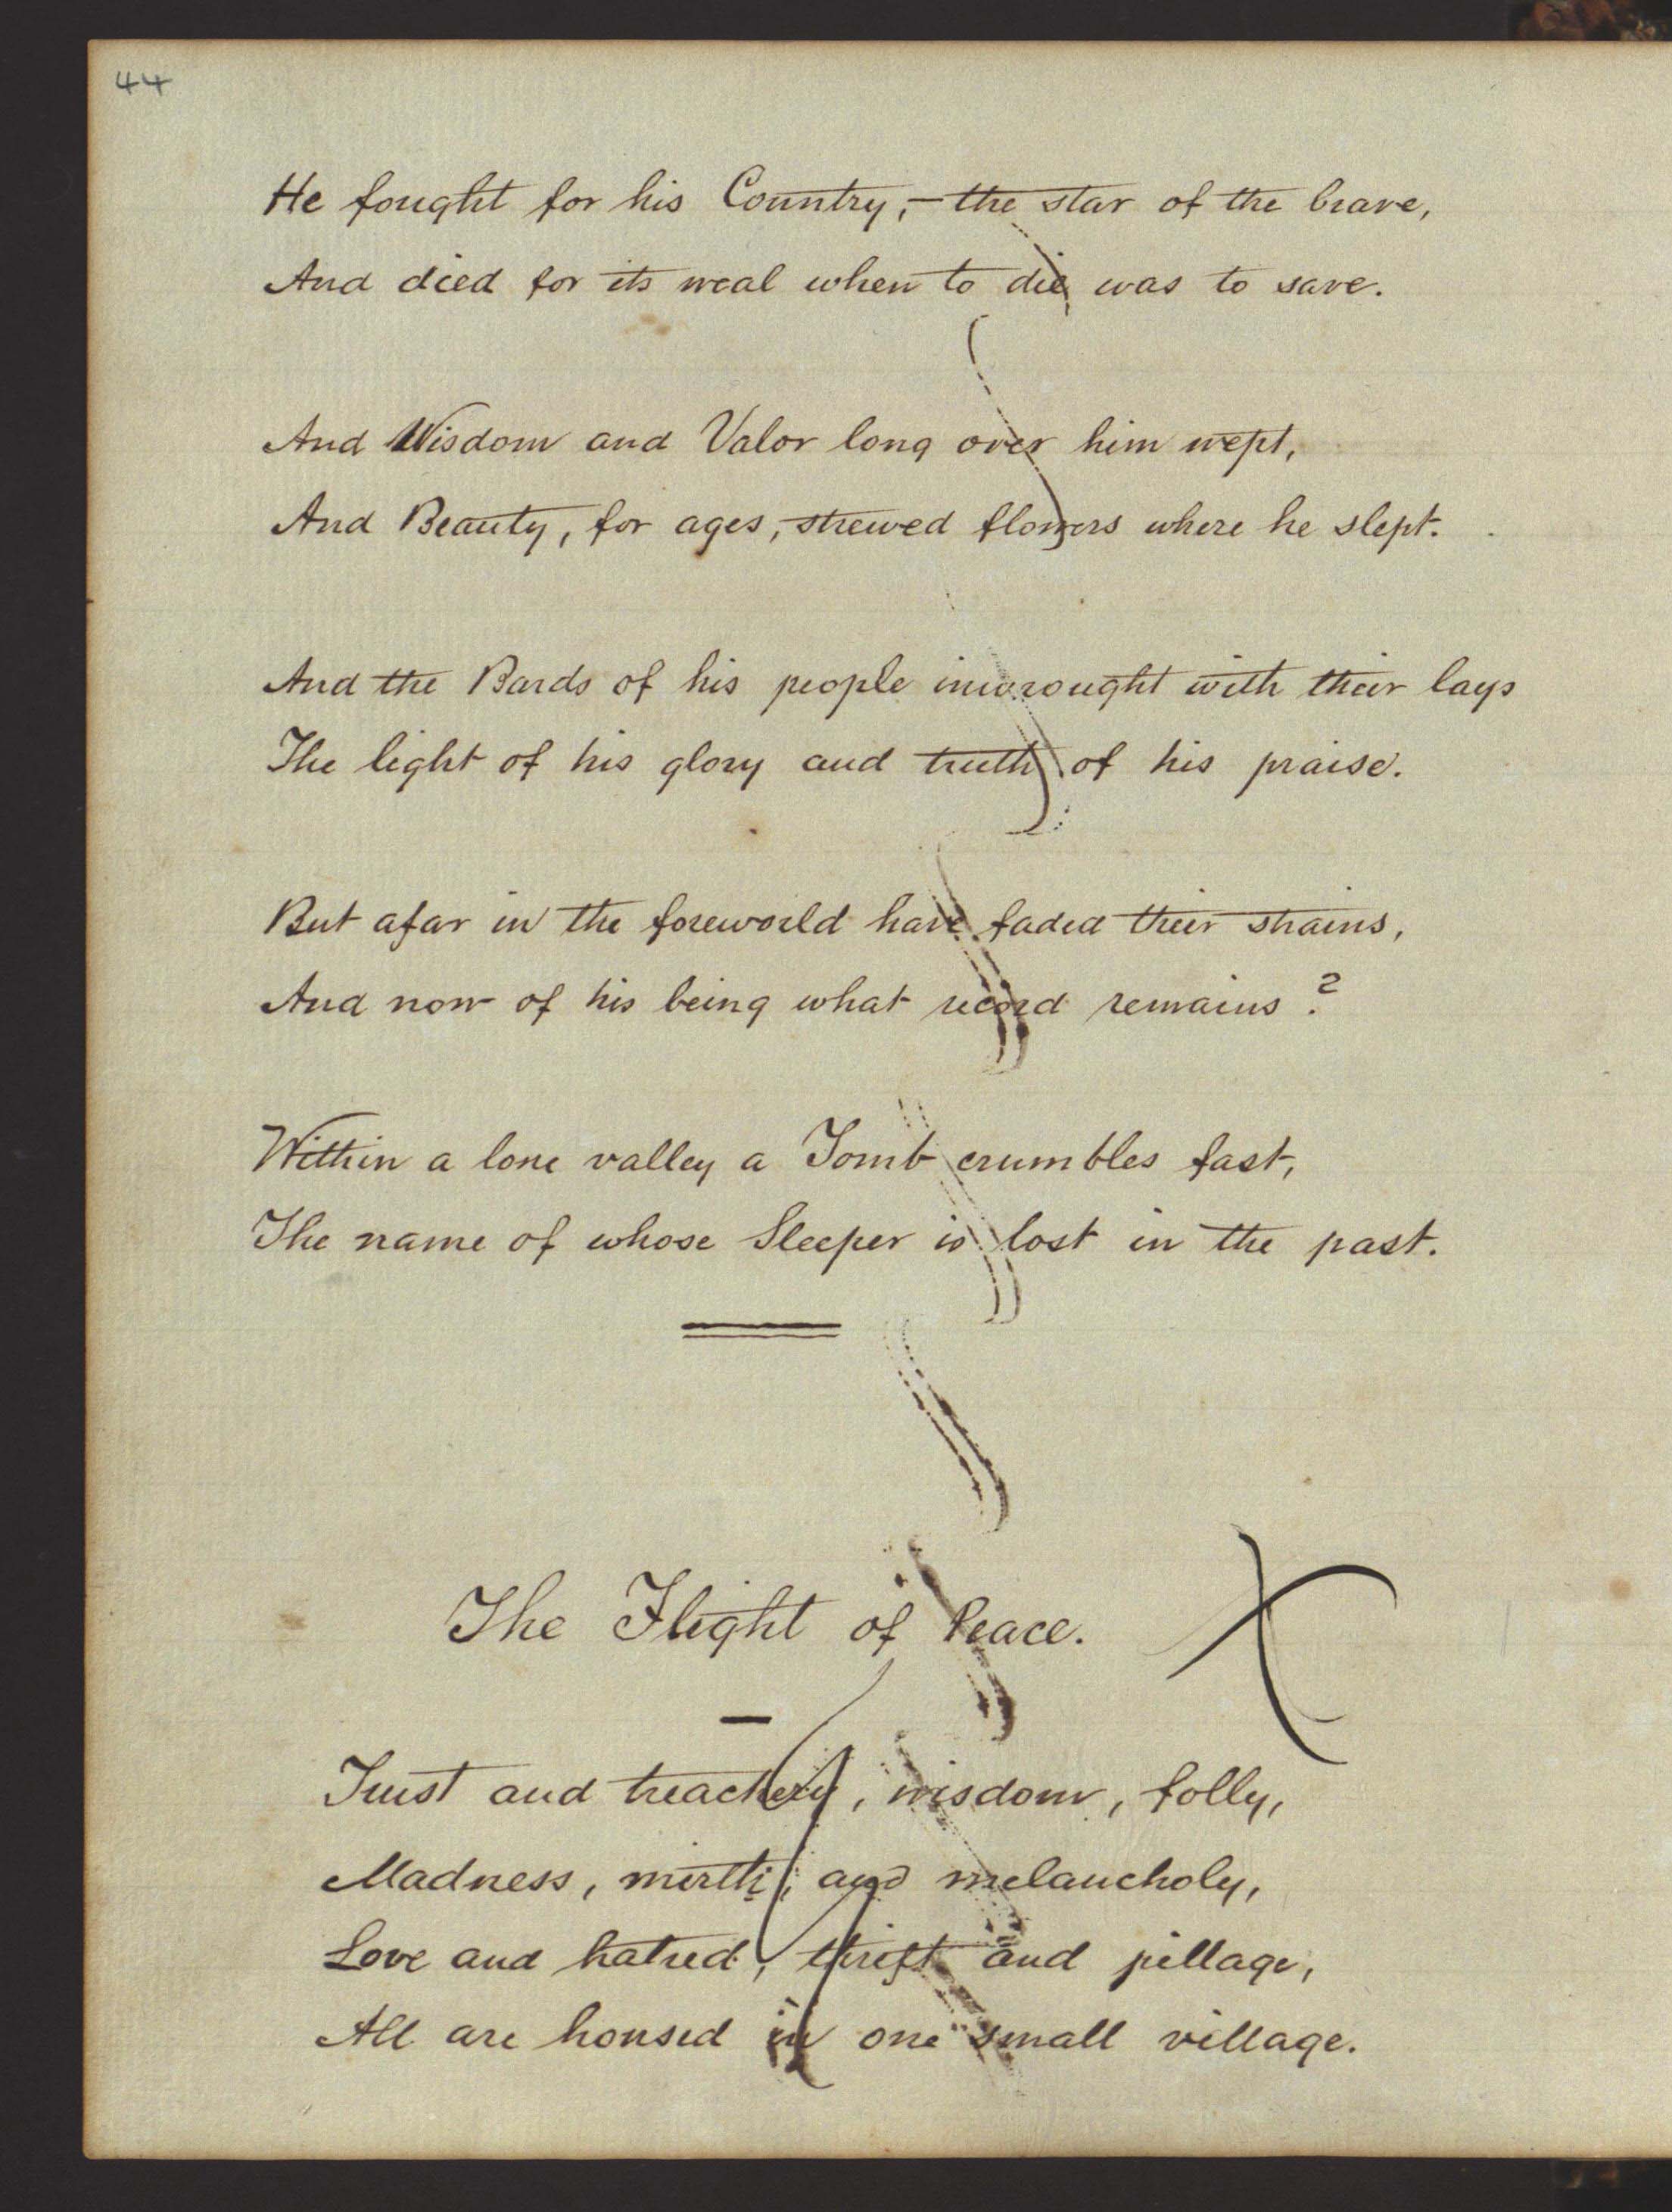 44
He fought for his Country, – the star of the brave,
And died for its weal when to die was to save.
And Wisdom and Valor long over him wept,
And Beauty, for ages, strewed flowers where he slept.
And the Bards of his people inwrought with their lays
The light of his glory and truth of his praise.
But afar in the foreworld have faded their strains,
And now of his being what record remains?
Within a lone valley a Tomb crumbles fast,
The name of whose Sleeper is lost in the past.
The Flight of Peace.
Trust and treachery, wisdom, folly,
Madness, mirth, and melancholy,
Love and hatred, thrift and pillage,
All are housed in one small village.